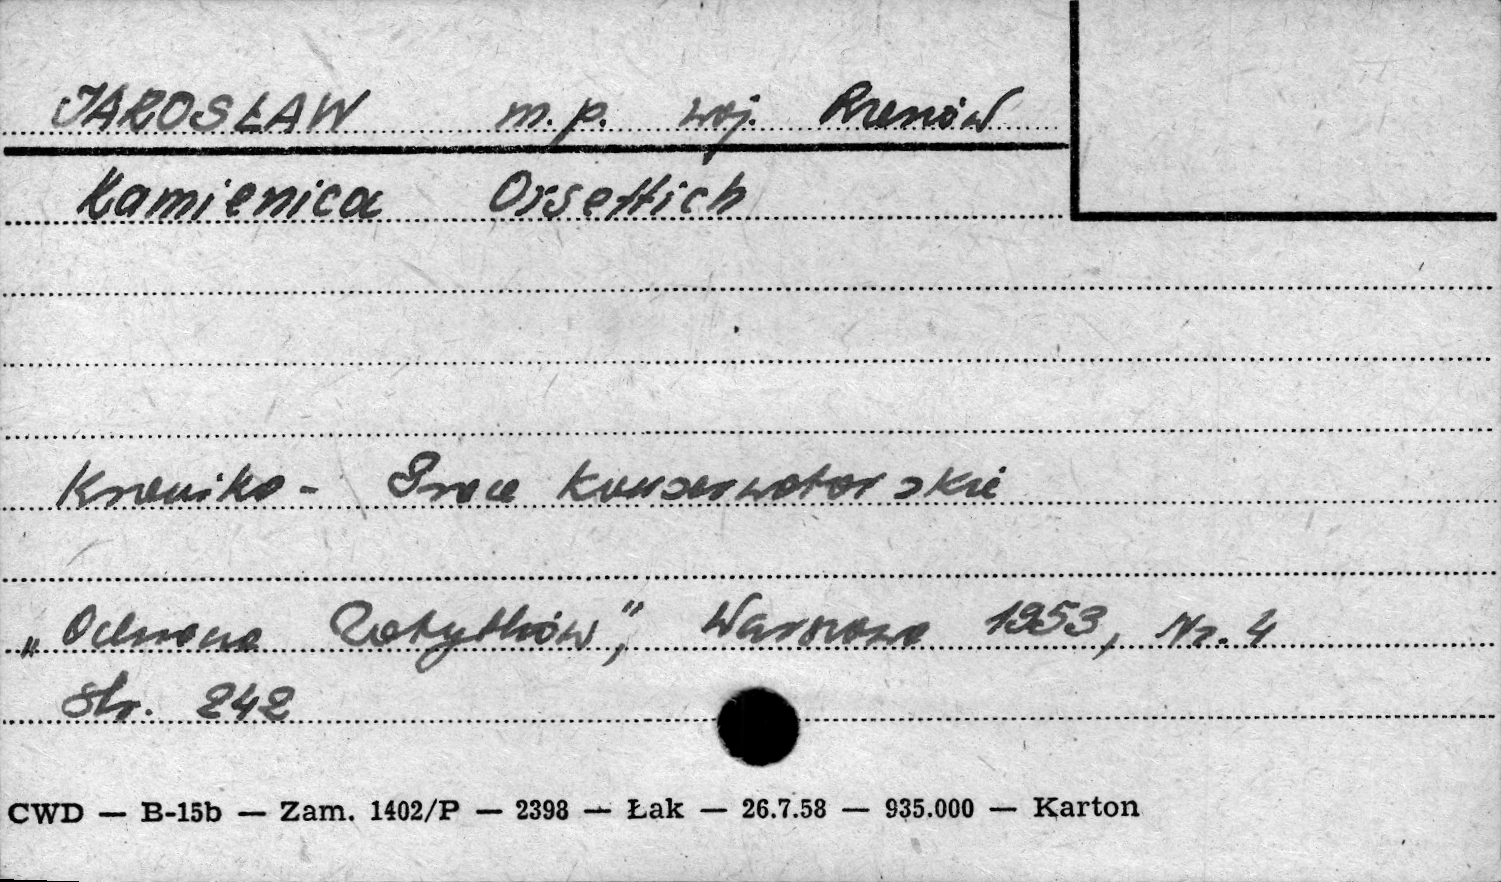 JAROSŁAW m.p. woj. Rzeszów
Kamienica Orsettich
Kronika - Prace Konserwatorskie
„Ochrona Zabytków”, Warszawa 1953, Nr. 4
Str. 242
CWD — B-15b — Zam. 1402/P — 2398 — Łak — 26.7.58 — 935.000 — Karton